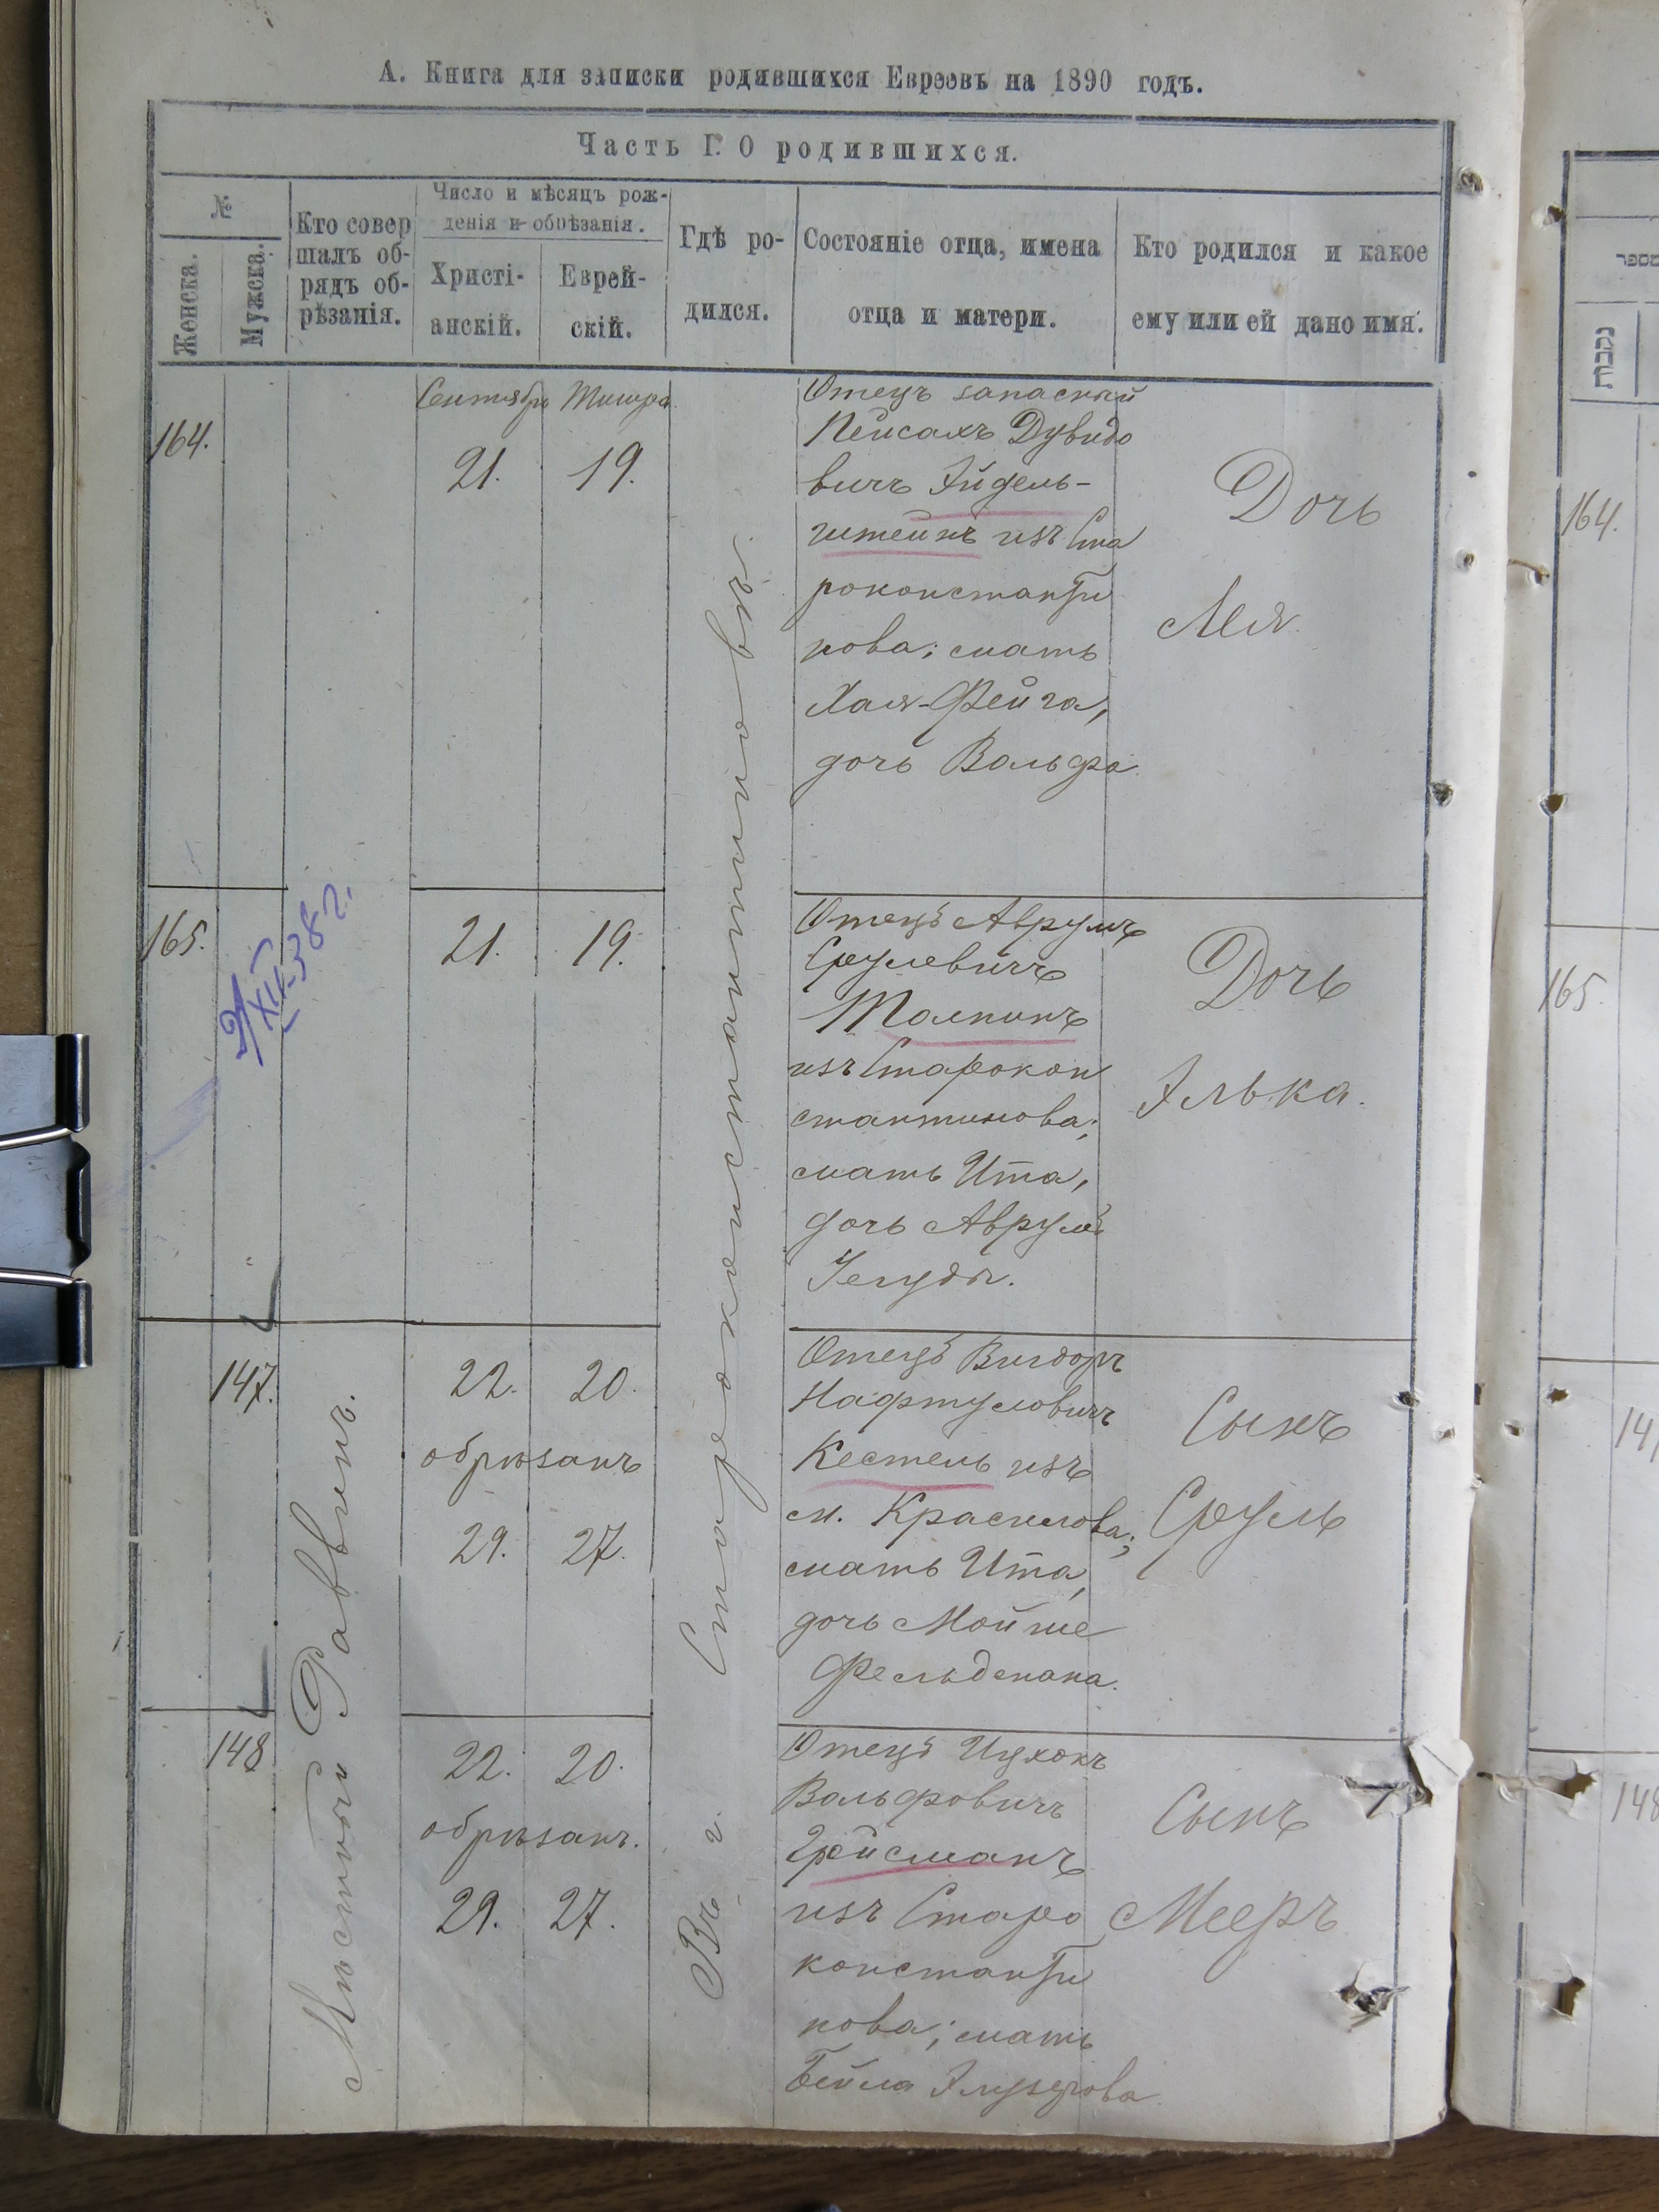 А. Книга для записки родившихся Евреевъ на 1890 годъ.
Часть I. О родившихся.
№
Женска.
Мужска.
Кто совер
шалъ об-
рядъ об-
рѣзанія.
Число и мѣсяцъ рож-
денія и обрѣзанія.
Христі-
анскій.
Еврей-
скій.
Гдѣ ро-
дился.
Состояніе отца, имена
отца и матери.
Кто родился и какое
ему или ей дано имя.
Мѣстный Раввинъ.
Въ г. Староконстантиновѣ.
164.
Сентябрь
21.
Тишри
19.
Отецъ запасный
Пейсахъ Дувидо
вичъ Эйдель-
штейнъ изъ Ста
роконстанти
нова; мать
Хая-Фейга,
дочь Вольфа
Дочь
Лея.
165.
21.
19.
Отецъ Аврумъ
Срулевичъ
Талпинъ
изъ Старокон
стантинова;
мать Ита,
дочь Аврумъ
Іегуды.
Дочь
Элька.
XII-38 г.
147.
22.
20.
обрѣзанъ
29.
27.
Отецъ Вигдоръ
Нафтуловичъ
Кестель изъ
м. Красилова;
мать Ита,
дочь Мойше
Фельдмана.
Сынъ
Сруль
148
22.
20.
обрѣзанъ.
29.
27.
Отецъ Ицхокъ
Вольфовичъ
Гройсманъ
изъ Старо
константи
нова; мать
Бейла Элузерова
Сынъ
Мееръ
מספר
נקבות
164.
165.
14
148